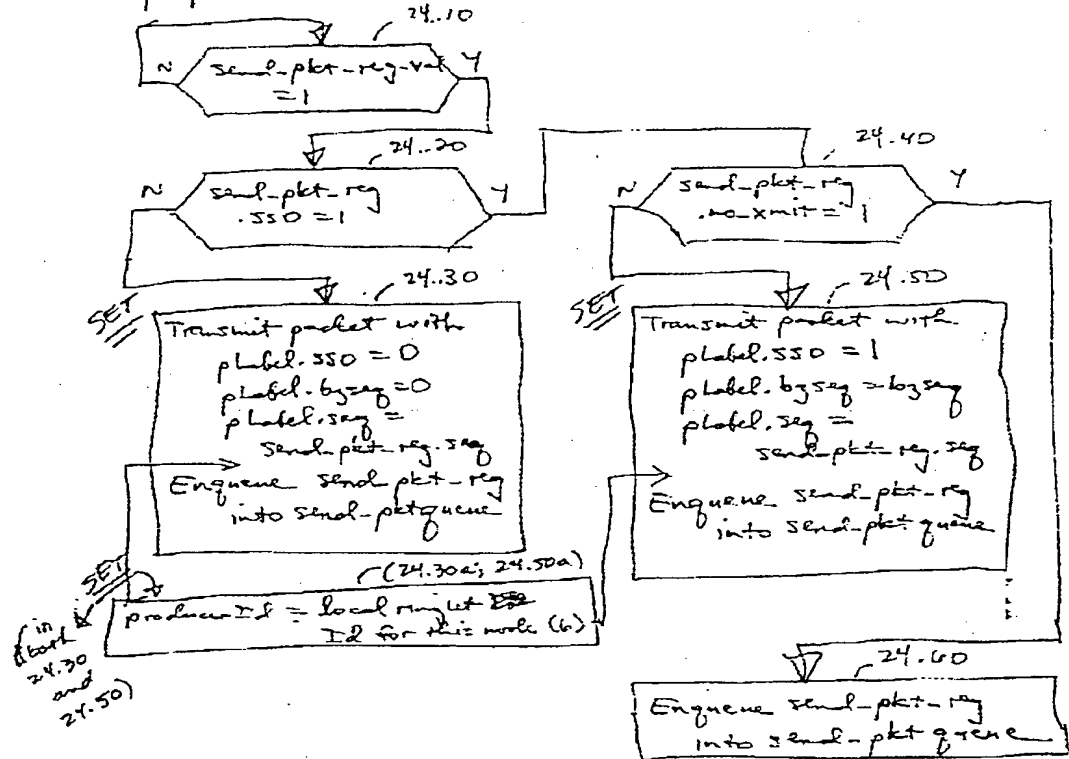 24.10
N
send-pkt-reg-val
Y
= 1
24.20
N
send_pkt_reg
.SSO = 1
Y
24.40
N
send_pkt_reg
.no_xmit = 1
Y
24.30
SET
Transmit packet with
pLabel.SSO = 0
pLabel.bzseq = 0
pLabel.seq =
send_pkt_reg.seq
Enqueue send_pkt_reg
into send_pktqueue
24.50
SET
Transmit packet with
pLabel.SSO = 1
pLabel.bzseq = bzseq
pLabel.seq =
send_pkt_reg.seq
Enqueue send_pkt_reg
into send_pkt queue
SET
(in
both
24.30
and
24.50)
(24.30a; 24.50a)
producerId = local ringlet
Id for this node (6)
24.60
Enqueue send_pkt_reg
into send_pkt queue